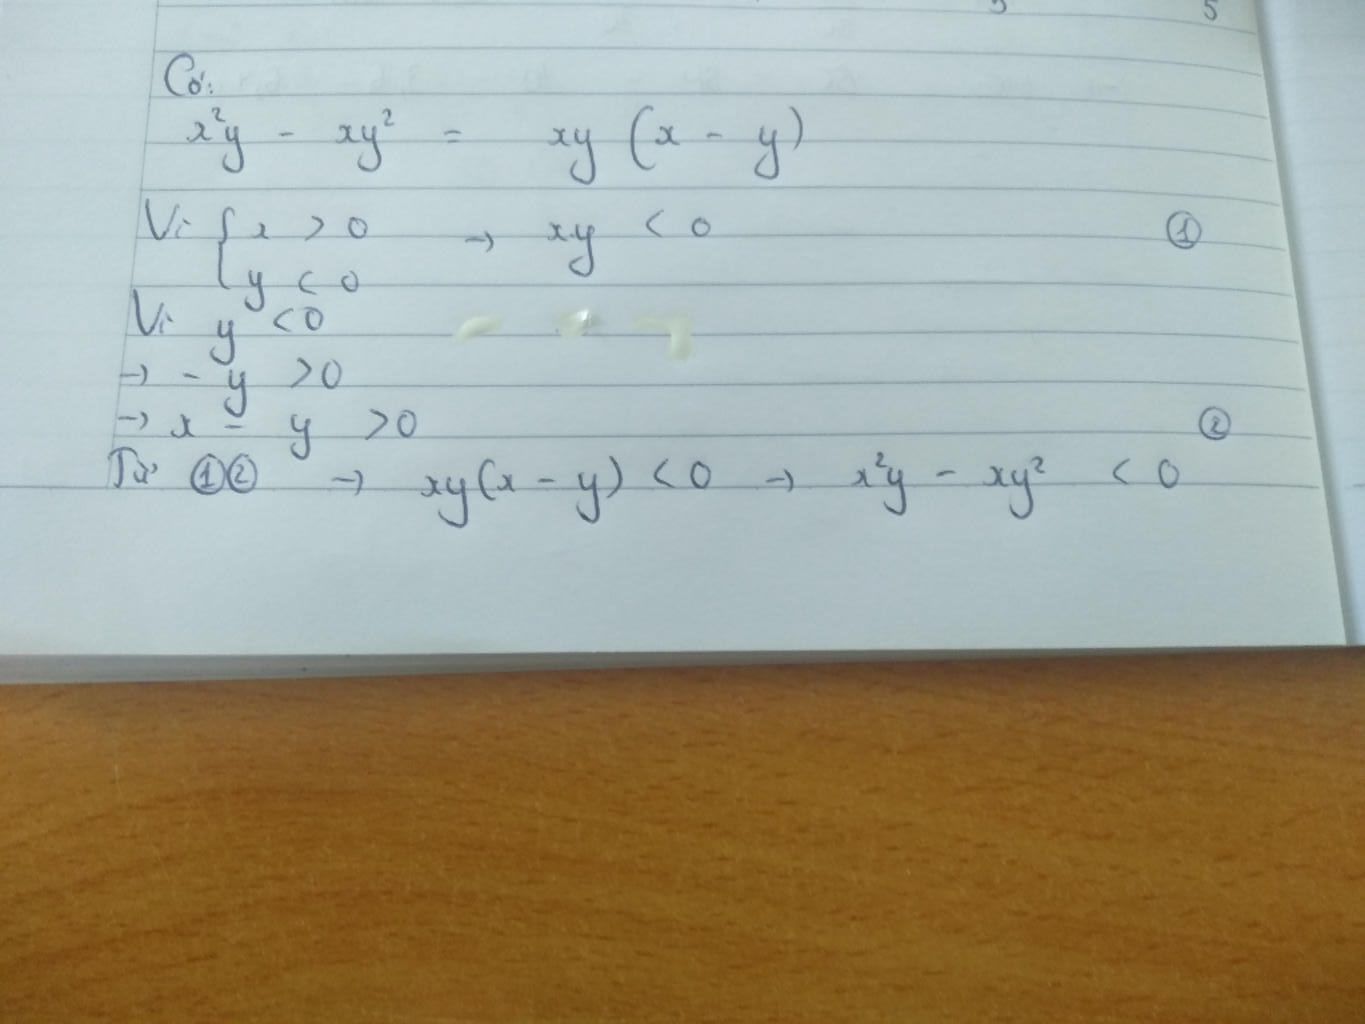 5 5
Có:
x²y - xy² = xy (x - y)
Vì { x > 0 → xy < 0 ①
y < 0
Vì y < 0
→ - y > 0
→ x - y > 0 ②
Từ ①② → xy(x - y) < 0 → x²y - xy² < 0